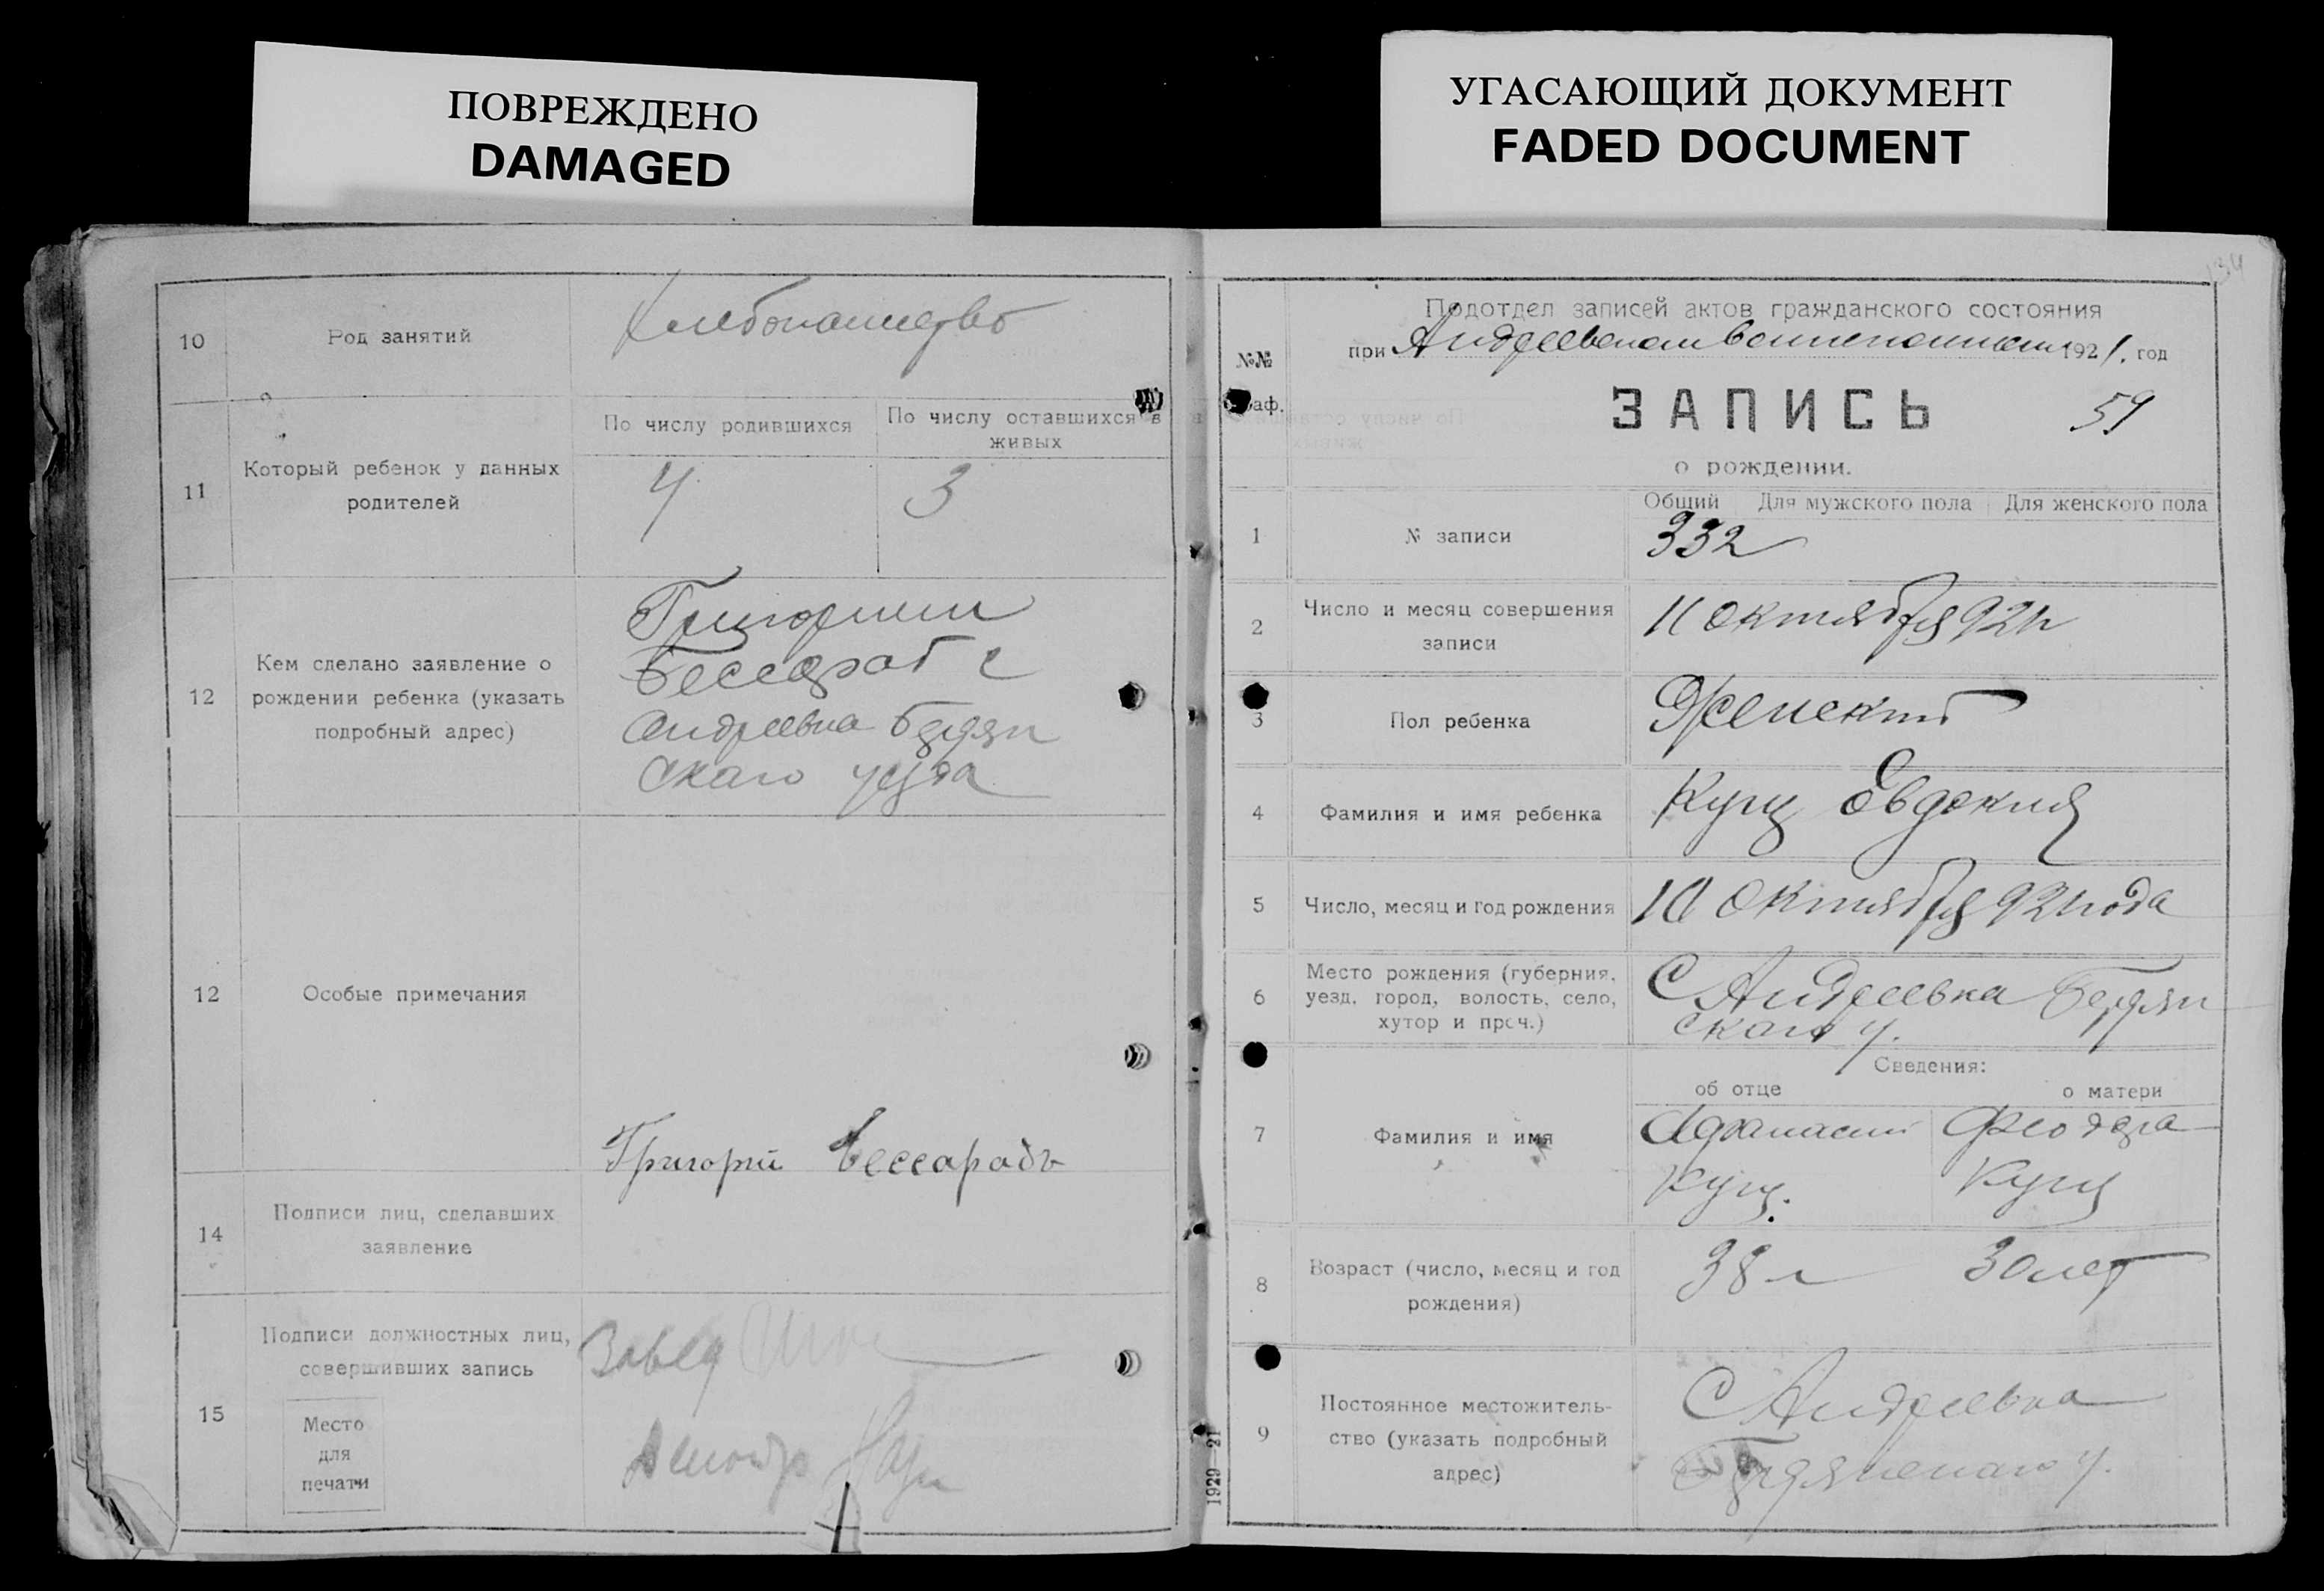 ПОВРЕЖДЕНО
DAMAGED
УГАСАЮЩИЙ ДОКУМЕНТ
FADED DOCUMENT
10
Род занятий
Хлебопашество
11
Который ребенок у данных
родителей
По числу родившихся
По числу оставшихся в
живых
4
3
12
Кем сделано заявление о
рождении ребенка (указать
подробный адрес)
Григорием
Бессараб с
Андреевка Бердян
скаго уезда
12
Особые примечания
Григорий Бессарабъ
14
Подписи лиц, сделавших
заявление
15
Подписи должностных лиц,
совершивших запись
Место
для
печати
Завед
134
№№
аф.
Подотдел записей актов гражданского состояния
при Андреевском Волисполкоме 1921. год
ЗАПИСЬ
59
о рождении.
Общий Для мужского пола Для женского пола
1
№ записи
332
2
Число и месяц совершения
записи
11 октября 921г
3
Пол ребенка
Женский
4
Фамилия и имя ребенка
Куц Евдокия
5
Число, месяц и год рождения
10 октября 921 года
6
Место рождения (губерния,
уезд, город, волость, село,
хутор и проч.)
С Андреевка Бердян
скаго у.
Сведения:
об отце
о матери
7
Фамилия и имя
Афанасий
Куц.
Феодора
Куц
8
Возраст (число, месяц и год
рождения)
38 л
30 лет
9
Постоянное местожитель-
ство (указать подробный
адрес)
С Андреевка
Бердянскаго у.
1929—21